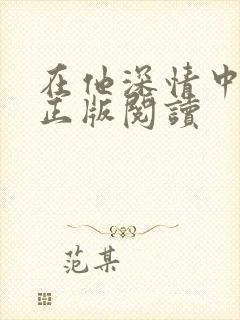 在他深情中
正版閱讀
范某